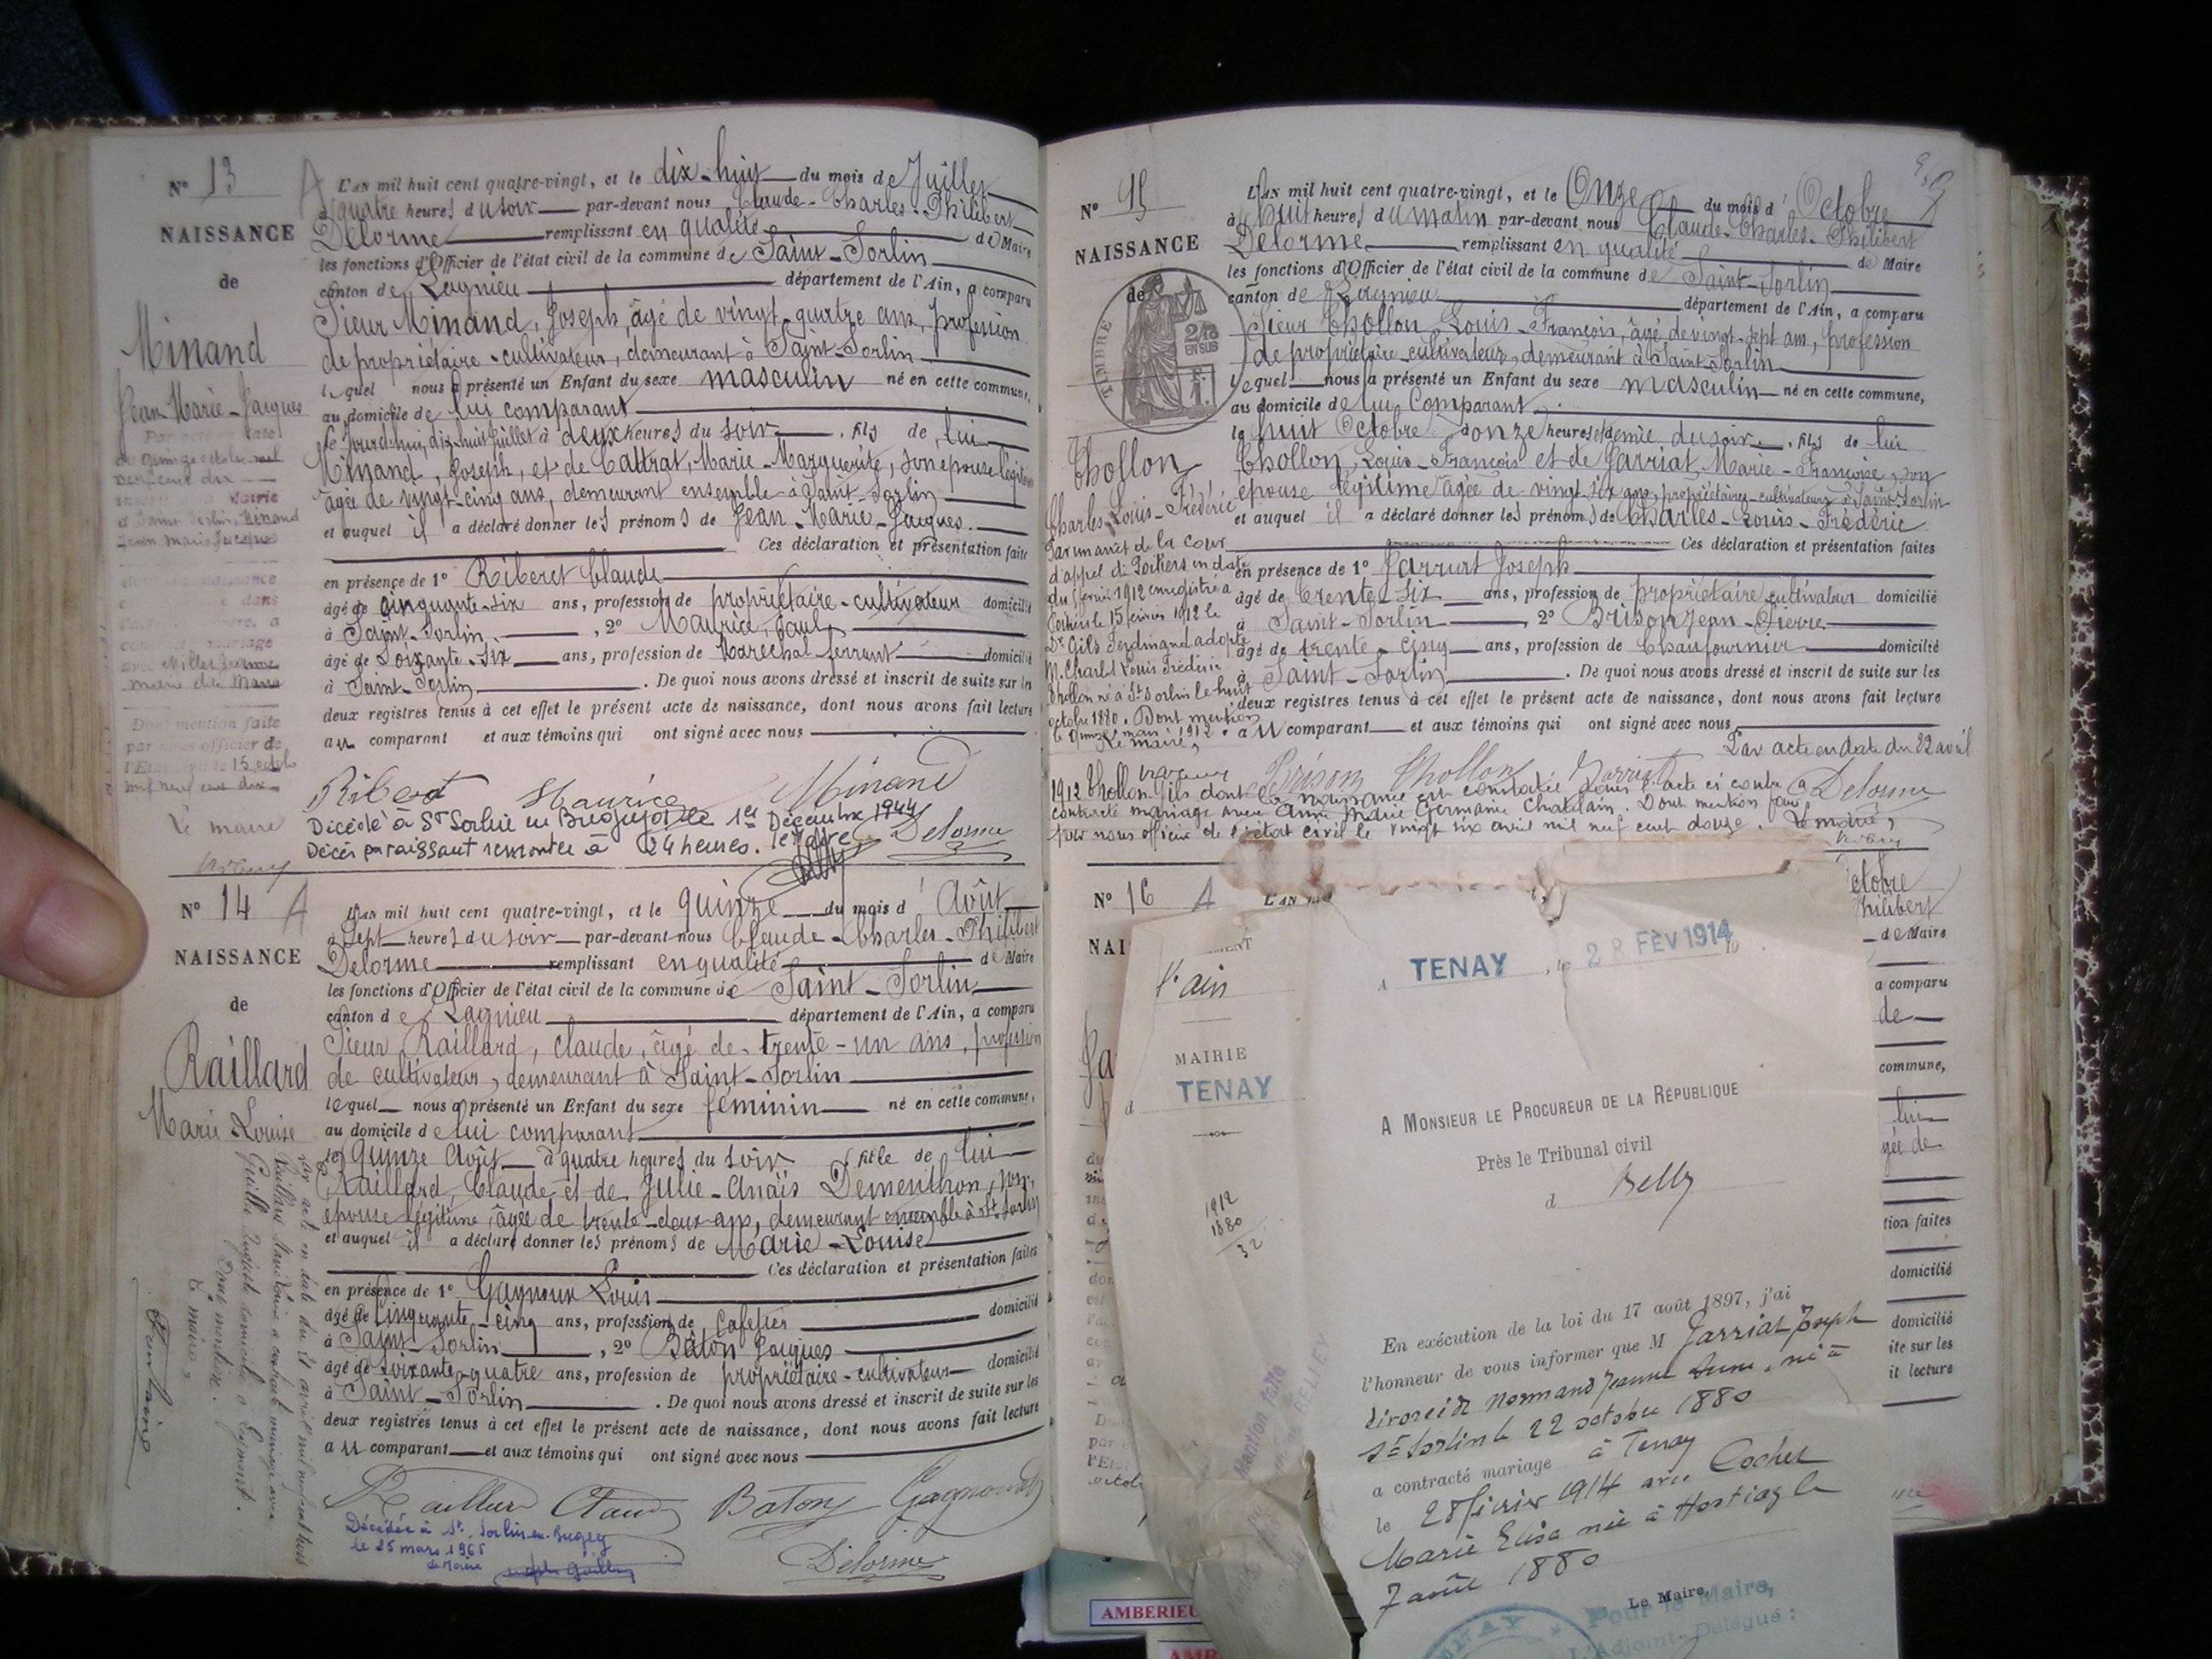 N° 13
NAISSANCE
de
Minand
Jean-Marie-Jacques
L'AN mil huit cent quatre-vingt, et le dix-huit du mois de Juillet
à quatre heures du soir par-devant nous Claude-Charles-Philibert
Delorme remplissant en qualité de Maire
les fonctions d'Officier de l'état civil de la commune de Saint-Sorlin
canton de Lagnieu département de l'Ain, a comparu
Sieur Minand, Joseph, âgé de vingt-quatre ans, profession
de propriétaire-cultivateur, demeurant à Saint-Sorlin
lequel nous a présenté un Enfant du sexe masculin né en cette commune,
au domicile de lui comparant
le jourd'hui, dix-huit Juillet à deux heures du soir, fils de lui
Minand, Joseph, et de Cattrat, Marie-Marguerite, son épouse légitime
âgée de vingt-cinq ans, demeurant ensemble à Saint-Sorlin
et auquel il a déclaré donner les prénoms de Jean-Marie-Jacques.
Ces déclaration et présentation faites
en présence de 1° Riberet Claude
âgé de cinquante-six ans, profession de propriétaire-cultivateur domicilié
à Saint-Sorlin, 2° Maurice, Paul,
âgé de soixante-six ans, profession de Maréchal ferrant domicilié
à Saint-Sorlin. De quoi nous avons dressé et inscrit de suite sur les
deux registres tenus à cet effet le présent acte de naissance, dont nous avons fait lecture
au comparant et aux témoins qui ont signé avec nous
Maurice Minand
Décédé à St Sorlin en Bugey le 1er Décembre 1944
Décès paraissant remonter à 24 heures. le Maire
Delorme
Par acte en date
de quinze octobre mil
neuf cent dix
Mairie
à Saint-Sorlin, Minand
Jean Marie Jacques
mariage
Dont mention faite
par nous officier de
l'Etat civil le 15 octobre
mil neuf cent dix
Le maire
N° 14
NAISSANCE
de
Raillard
Marie-Louise
L'AN mil huit cent quatre-vingt, et le quinze du mois d'Août
à sept heures du soir par-devant nous Claude-Charles-Philibert
Delorme remplissant en qualité de Maire
les fonctions d'Officier de l'état civil de la commune de Saint-Sorlin
canton de Lagnieu département de l'Ain, a comparu
Sieur Raillard, Claude, âgé de trente-un ans, profession
de cultivateur, demeurant à Saint-Sorlin
lequel nous a présenté un Enfant du sexe féminin né en cette commune,
au domicile de lui comparant
le quinze Août à quatre heures du soir fille de lui
Raillard, Claude et de Julie-Anaïs Dementhon, son
épouse légitime, âgée de trente-deux ans, demeurant ensemble à St-Sorlin
et auquel il a déclaré donner les prénoms de Marie-Louise
Ces déclaration et présentation faites
en présence de 1° Gagnoux Louis
âgé de cinquante-cinq ans, profession de cafetier domicilié
à Saint-Sorlin, 2° Bâton Jacques
âgé de soixante-quatre ans, profession de propriétaire-cultivateur domicilié
à Saint-Sorlin. De quoi nous avons dressé et inscrit de suite sur les
deux registres tenus à cet effet le présent acte de naissance, dont nous avons fait lecture
au comparant et aux témoins qui ont signé avec nous
Raillard Claude Baton
Delorme
Décédée à St. Sorlin-en-Bugey
le 25 mars 1965
Le Maire
Par acte en date du
Raillard Marie Louise a contracté mariage avec
Dont mention.
Le maire,
N° 15
NAISSANCE
de
TIMBRE
2/10
EN SUS
Chollon
Charles-Louis-Frédéric
L'AN mil huit cent quatre-vingt, et le Onze du mois d'Octobre
à huit heures du matin par-devant nous Claude-Charles-Philibert
Delorme remplissant en qualité de Maire
les fonctions d'Officier de l'état civil de la commune de Saint-Sorlin
canton de Lagnieu département de l'Ain, a comparu
Sieur Chollon Louis-François, âgé de vingt-sept ans, profession
de propriétaire-cultivateur, demeurant à Saint-Sorlin
lequel nous a présenté un Enfant du sexe masculin né en cette commune,
au domicile de lui Comparant.
le huit Octobre à onze heures et demie du soir, fils de lui
Chollon, Louis-François et de Jarriat, Marie-Françoise, son
épouse légitime âgée de vingt-six ans, propriétaires-cultivateurs à Saint-Sorlin
et auquel il a déclaré donner les prénoms de Charles-Louis-Frédéric
Ces déclaration et présentation faites
en présence de 1° Jarriat Joseph
âgé de trente-six ans, profession de propriétaire cultivateur domicilié
à Saint-Sorlin 2° Brison Jean-Pierre
âgé de trente-cinq ans, profession de Chaufournier domicilié
à Saint-Sorlin. De quoi nous avons dressé et inscrit de suite sur les
deux registres tenus à cet effet le présent acte de naissance, dont nous avons fait lecture
au comparant et aux témoins qui ont signé avec nous
Par un arrêt de la Cour
d'appel de Poitiers en date
du février 1912 enregistré à
Poitiers le 15 février 1912 le
Dr Gils Ferdinand adopte
M. Charles Louis Frédéric
Chollon né à St Sorlin le huit
octobre 1880. Dont mention
mars 1912.
Le maire,
Par acte en date du 22 avril
Brison Chollon Jarriat Delorme
1912 Chollon-Gils dont la naissance est constatée dans l'acte ci contre a
contracté mariage avec Anne Marie Germaine Chatelain. Dont mention faite
par nous officier de l'état civil le vingt six avril mil neuf cent douze. Le maire,
N° 16
L'AN
NAI
ctobre
hilibert
de Maire
a comparu
de
commune,
lui
gée de
tion faites
domicilié
domicilié
ite sur les
it lecture
l'ain
MAIRIE
d TENAY
1912
1880
32
A TENAY, le 28 FÉV 1914
A MONSIEUR LE PROCUREUR DE LA RÉPUBLIQUE
Près le Tribunal civil
d Belley
En exécution de la loi du 17 août 1897, j'ai
l'honneur de vous informer que M Jarriat Joseph
divorcé de Normand Jeanne, né à
St Sorlin le 22 octobre 1880
a contracté mariage à Tenay
le 28 février 1914 avec Cochet
Marie Elisa née à Hostiaz le
7 août 1880
Le Maire,
Pour le Maire,
L'Adjoint-Délégué :
Mention faite
BELLEY
AMBERIEU
AMB